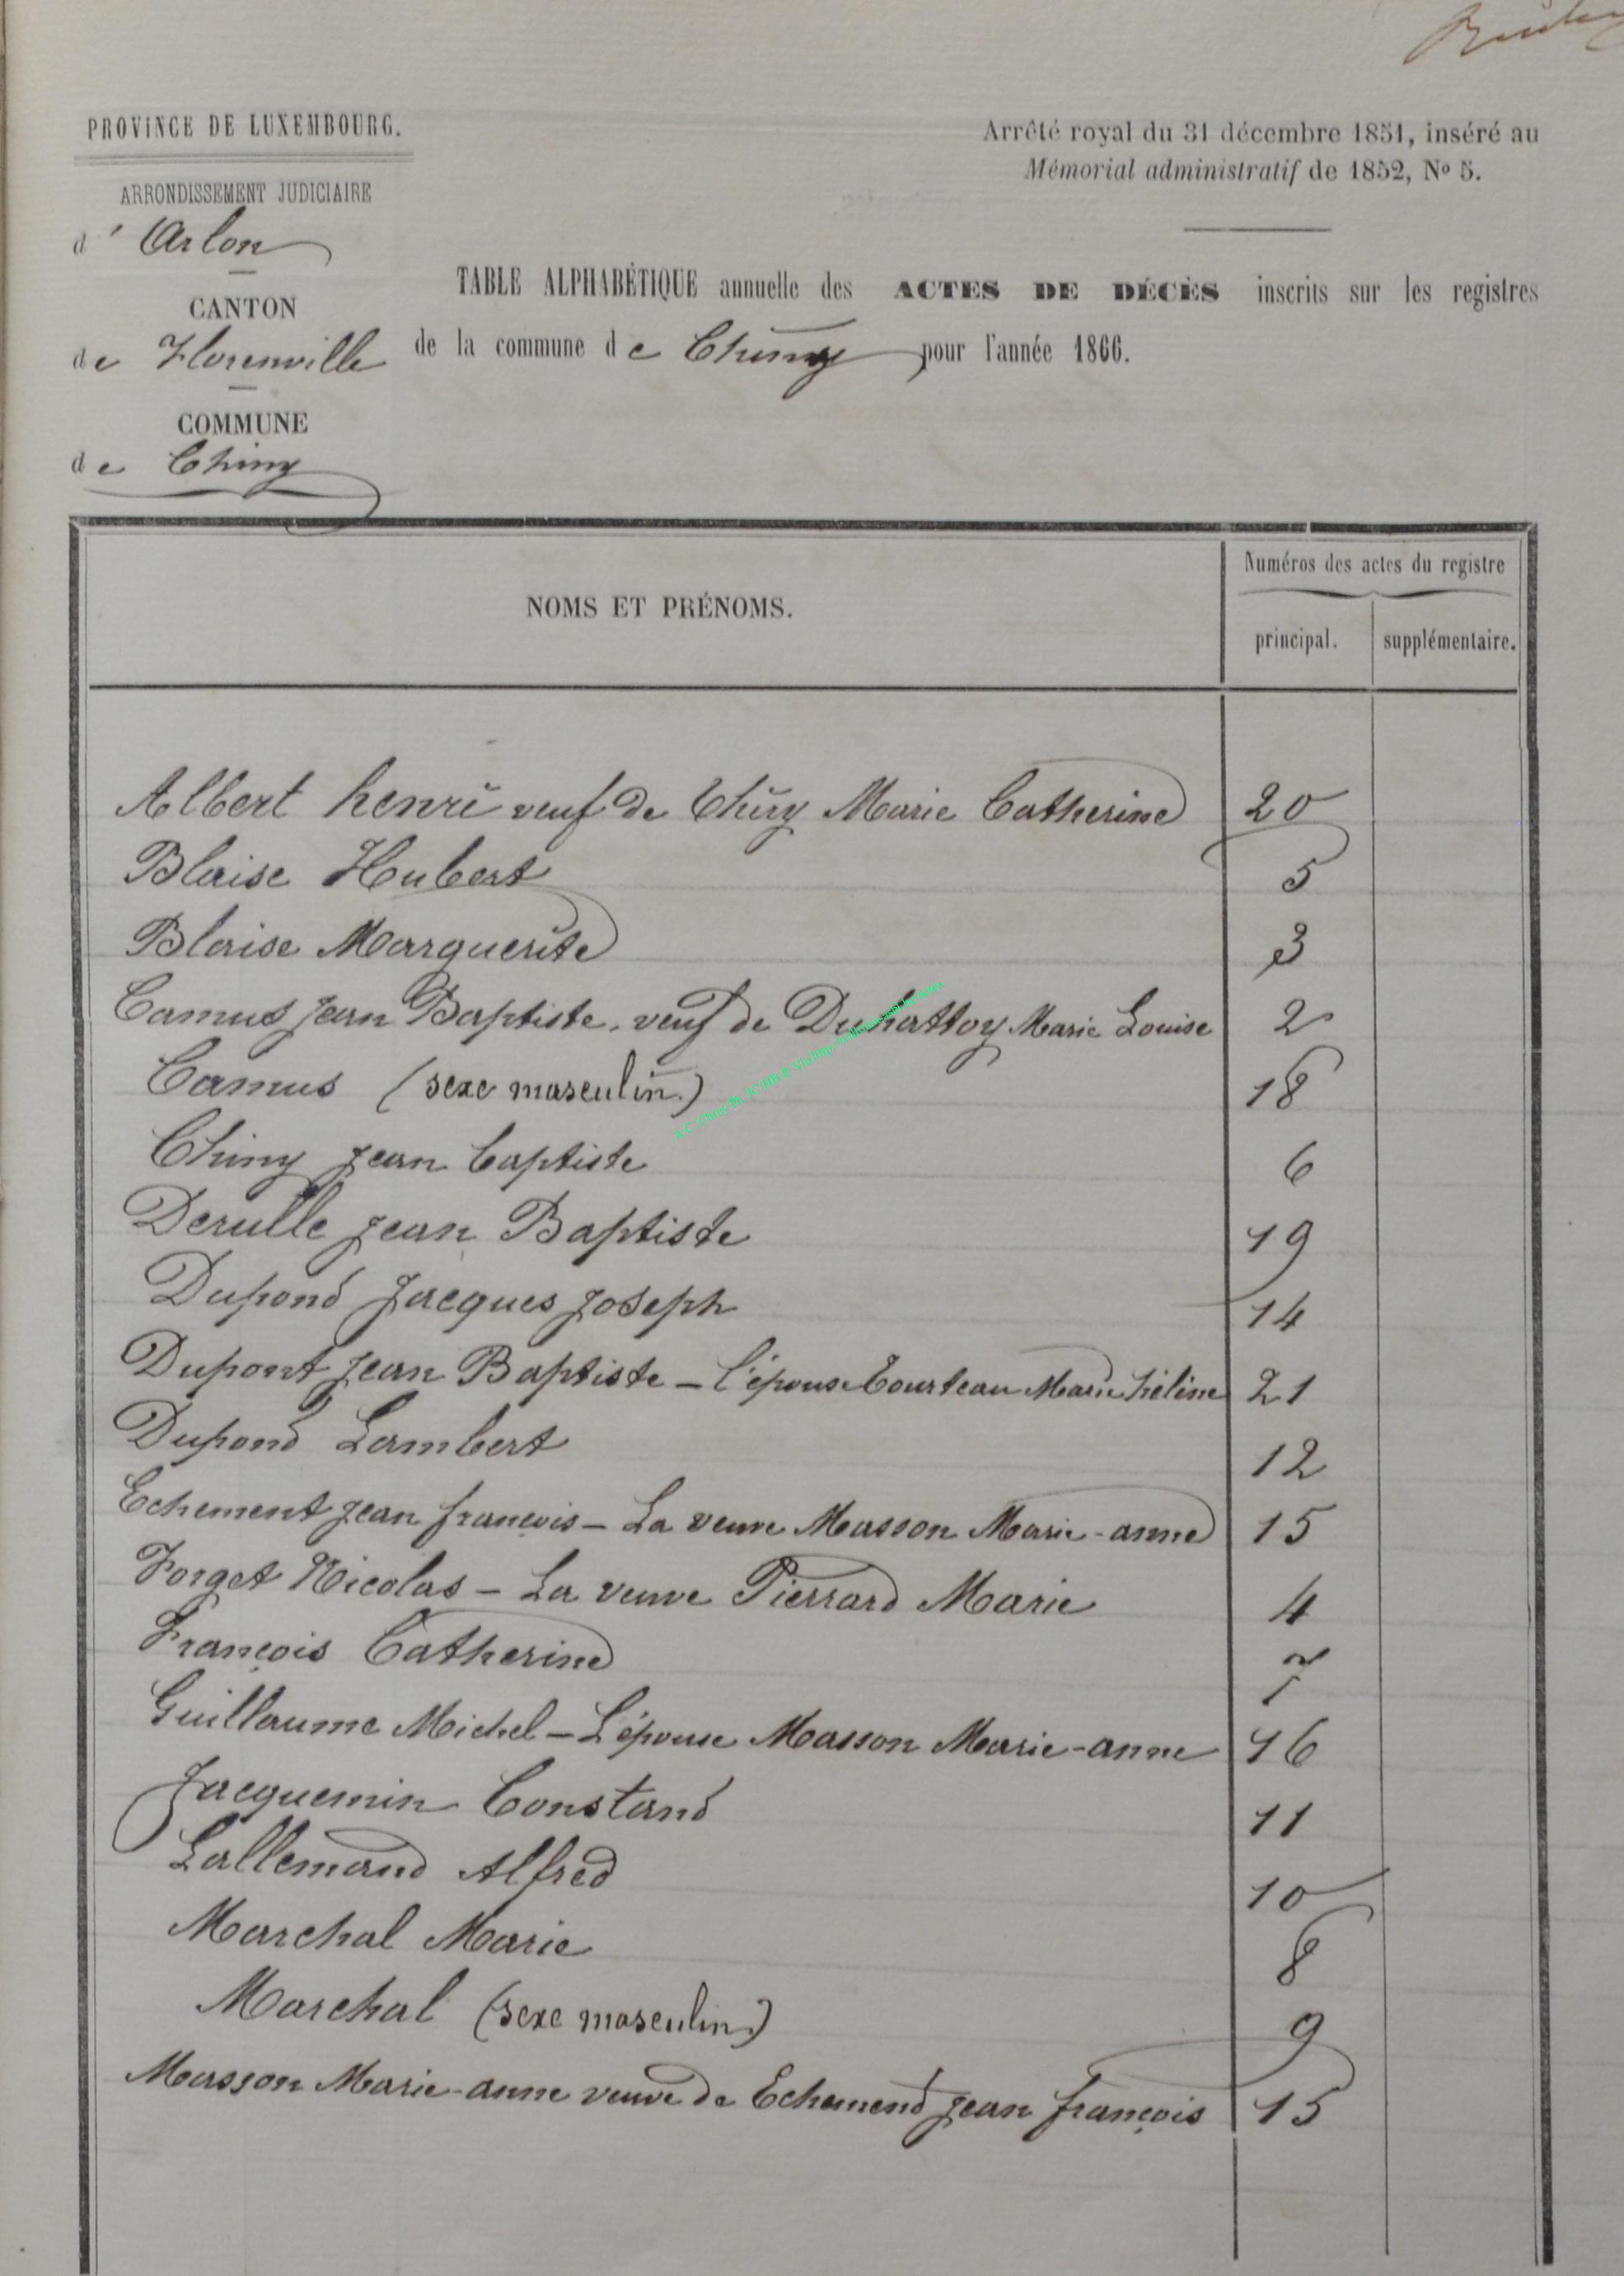 PROVINCE DE LUXEMBOURG.
ARRONDISSEMENT JUDICIAIRE
d' Arlon
CANTON
de Florenville
COMMUNE
de Chiny
Arrêté royal du 31 décembre 1851, inséré au
Mémorial administratif de 1852, No 5.
TABLE ALPHABÉTIQUE annuelle des ACTES DE DÉCÈS inscrits sur les registres
de la commune de Chiny pour l'année 1866.
NOMS ET PRÉNOMS.
Numéros des actes du registre
principal. supplémentaire.
Albert henri veuf de Chiny Marie Catherine 20
Blaise Hubert 5
Blaise Marguerite 3
Camus Jean Baptiste. veuf de Duhattoy Marie Louise 2
Camus (sexe masculin.) 18
Chiny Jean baptiste 6
Derulle Jean Baptiste 19
Dupond Jacques Joseph 14
Dupont Jean Baptiste - l'épouse Tourteau Marie hélène 21
Dupond Lambert 12
Echement Jean françois - La veuve Masson Marie-anne 15
Forget Nicolas - La veuve Pierrard Marie 4
François Catherine 7
Guillaume Michel - L'épouse Masson Marie-anne 16
Jacquemin Constand 11
Lallemand Alfred 10
Marchal Marie 8
Marchal (sexe masculin.) 9
Masson Marie-anne veuve de Echemend Jean françois 15